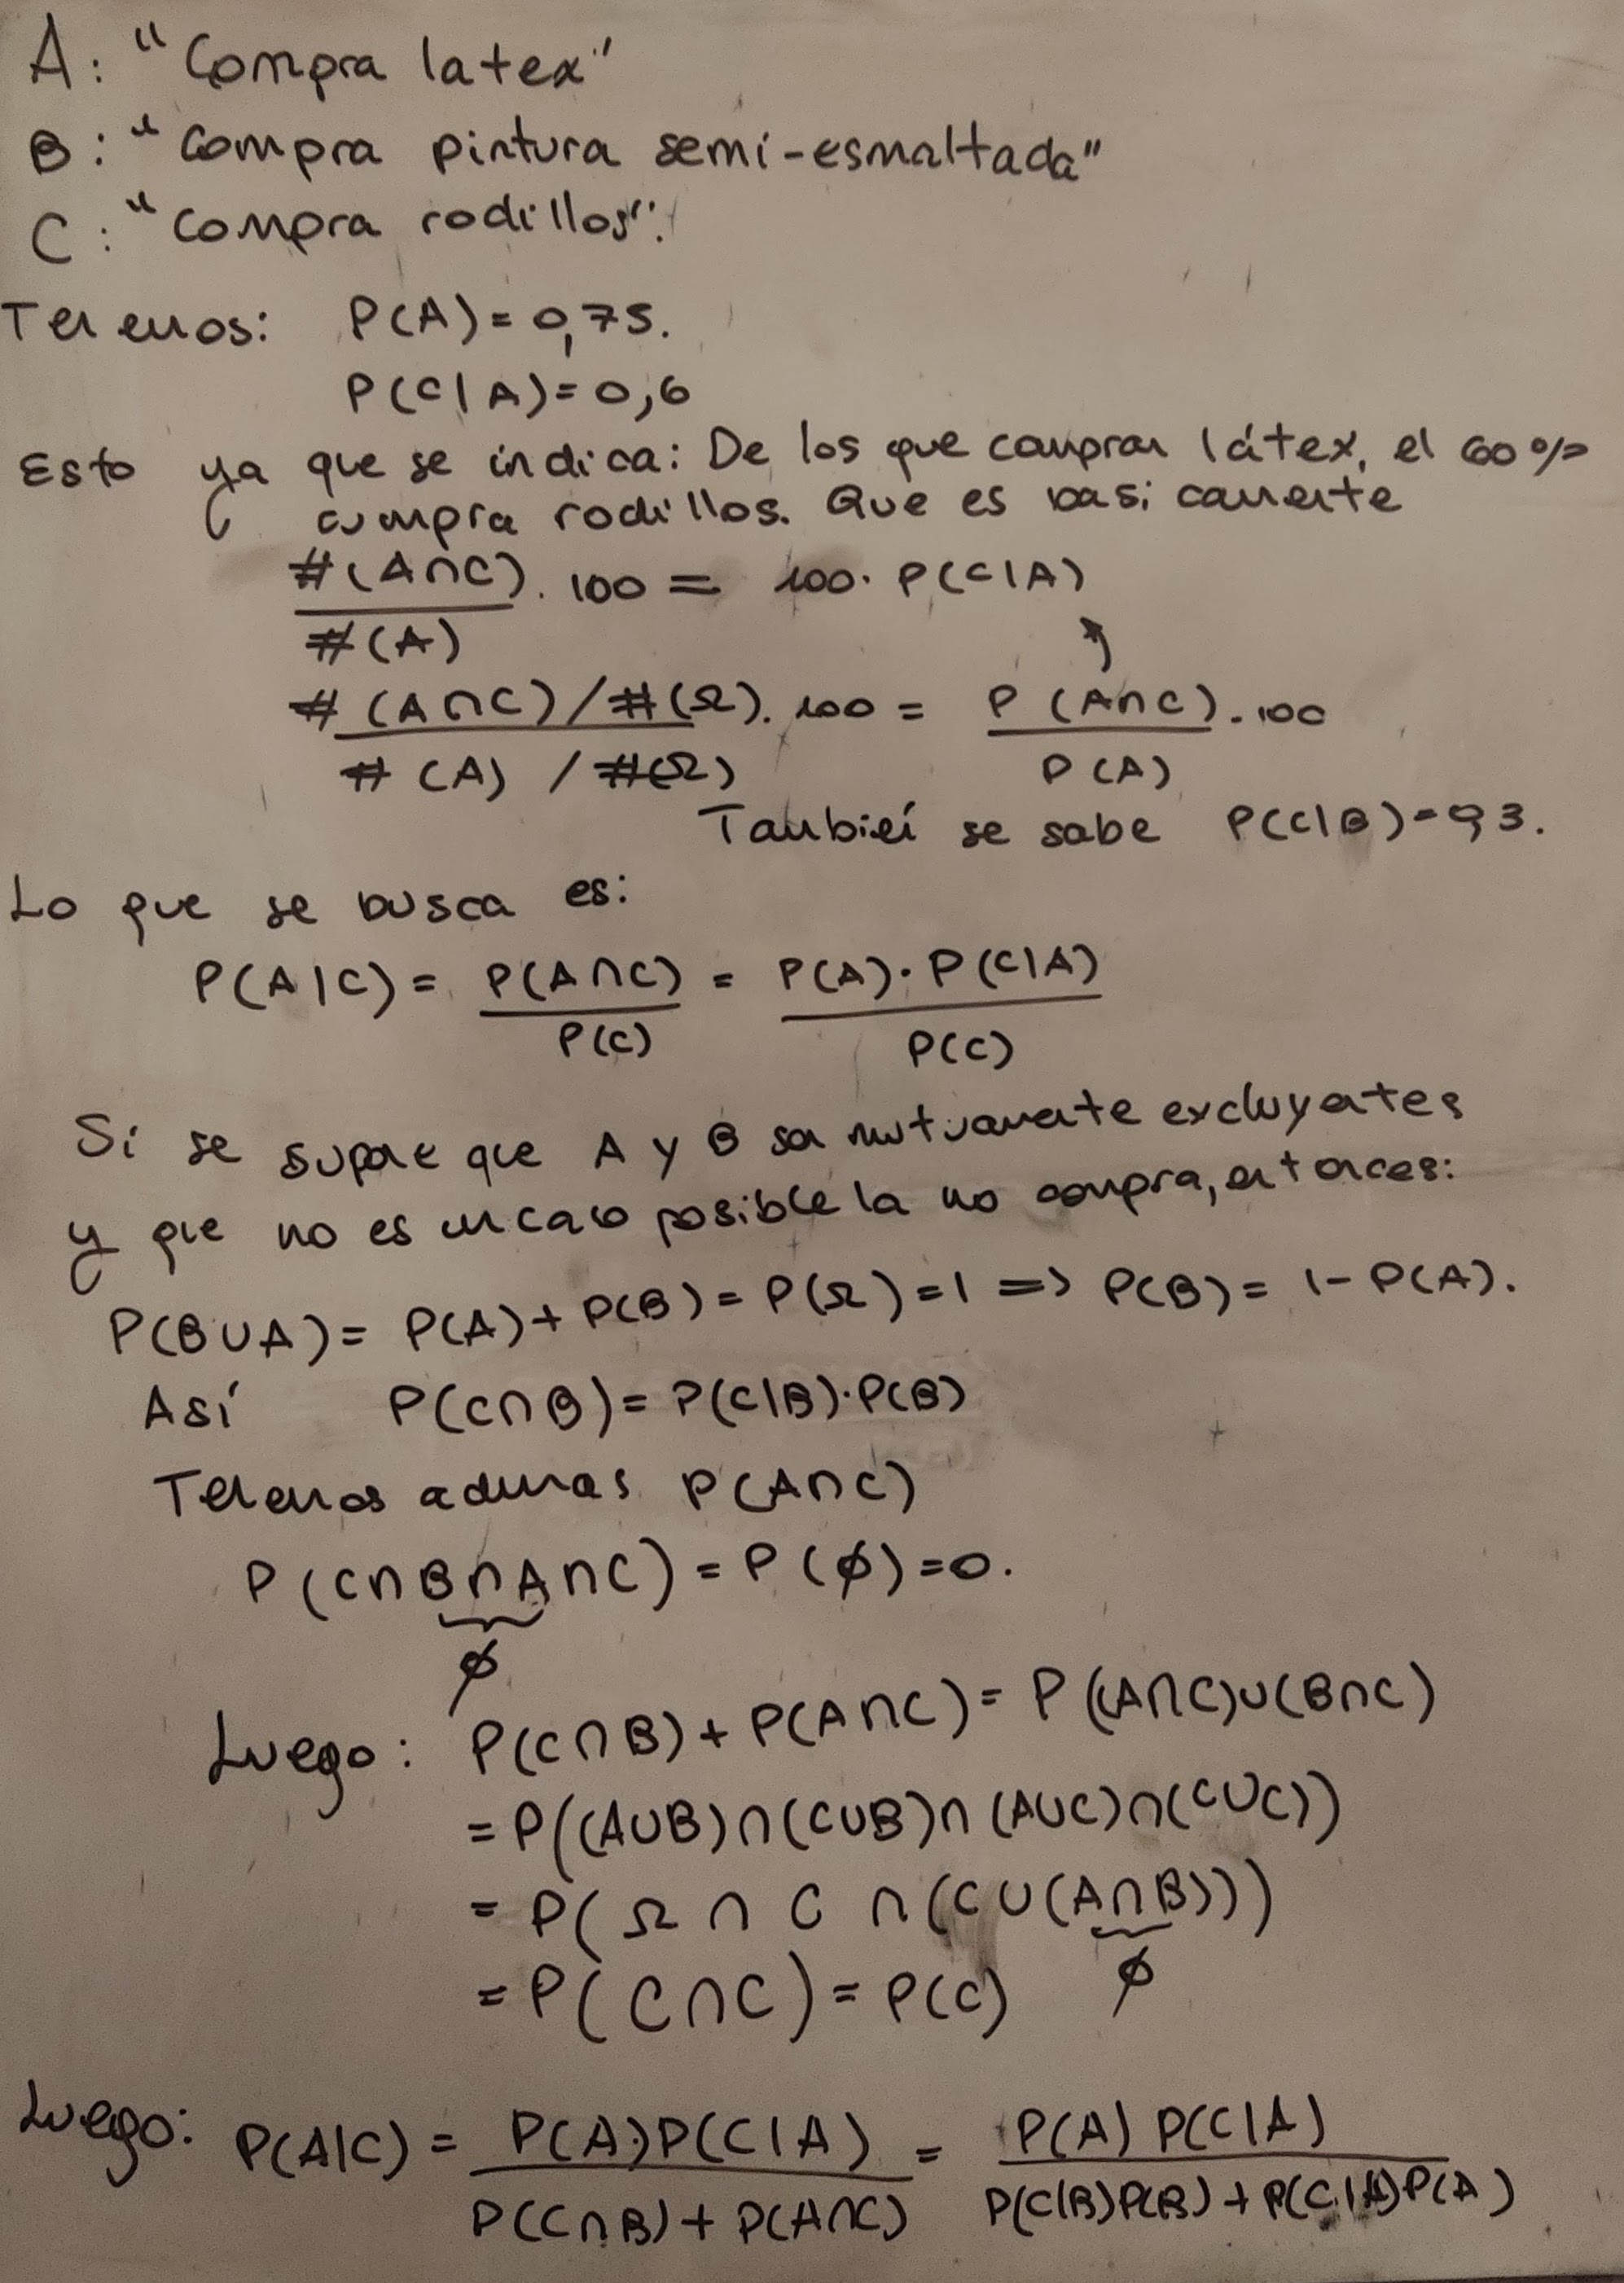 A: "Compra latex"
B: "Compra pintura semi-esmaltada"
C: "Compra rodillos".
Tenemos: P(A)=0,75.
P(C|A)=0,6
Esto ya que se indica: De los que compran látex, el 60%
compra rodillos. Que es basicamente
#(A∩C)/#(A) . 100 = 100. P(C|A)
#(A∩C)/#(Ω) / #(A)/#(Ω) . 100 = P(A∩C)/P(A) . 100
También se sabe P(C|B)=0,3.
Lo que se busca es:
P(A|C) = P(A∩C)/P(C) = P(A)·P(C|A)/P(C)
Si se supone que A y B son mutuamente excluyentes
y que no es un caso posible la no compra, entonces:
P(B∪A)= P(A)+P(B)=P(Ω)=1 => P(B)= 1-P(A).
Así P(C∩B)=P(C|B)·P(B)
Tenemos ademas P(A∩C)
P(C∩B∩A∩C)=P(∅)=0.
∅
Luego: P(C∩B)+P(A∩C)= P((A∩C)∪(B∩C)
=P((A∪B)∩(C∪B)∩(A∪C)∩(C∪C))
=P(Ω∩C∩(C∪(A∩B)))
∅
=P(C∩C)=P(C)
Luego: P(A|C) = P(A)·P(C|A)/P(C∩B)+P(A∩C) = P(A) P(C|A)/P(C|B)P(B)+P(C|A)P(A)